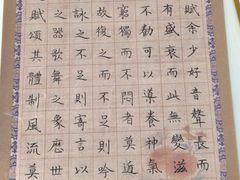 賦余少好音聲長而
有盛衰而此無變滋
不勌可以導養神氣
窮獨而不悶者莫近
故復之而不足則吟
詠之不足則寄言以
之器歌舞之象歷世
賦頌其體制風流莫